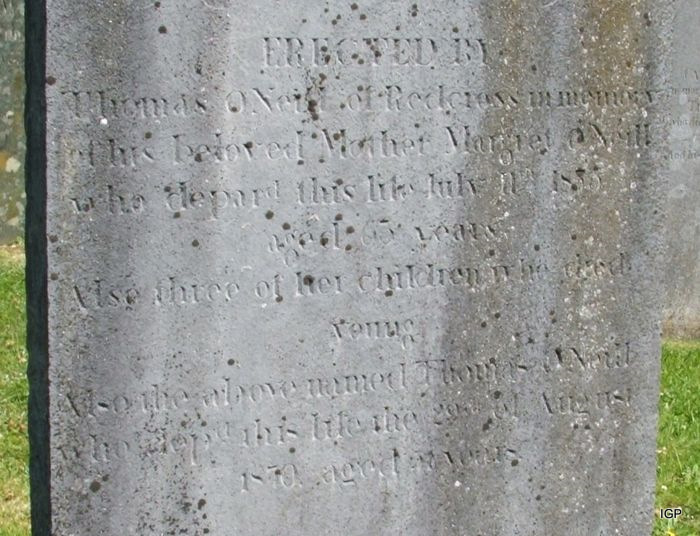 ERECTED BY
Thomas O'Neill of Redcross in memory
of his beloved Mother Margret O'Neill
who depard this life July 11th
aged years
Also three of her children who died
young
Also the above named Thomas O'Neill
who depd this life the of August
1870. aged years
IGP